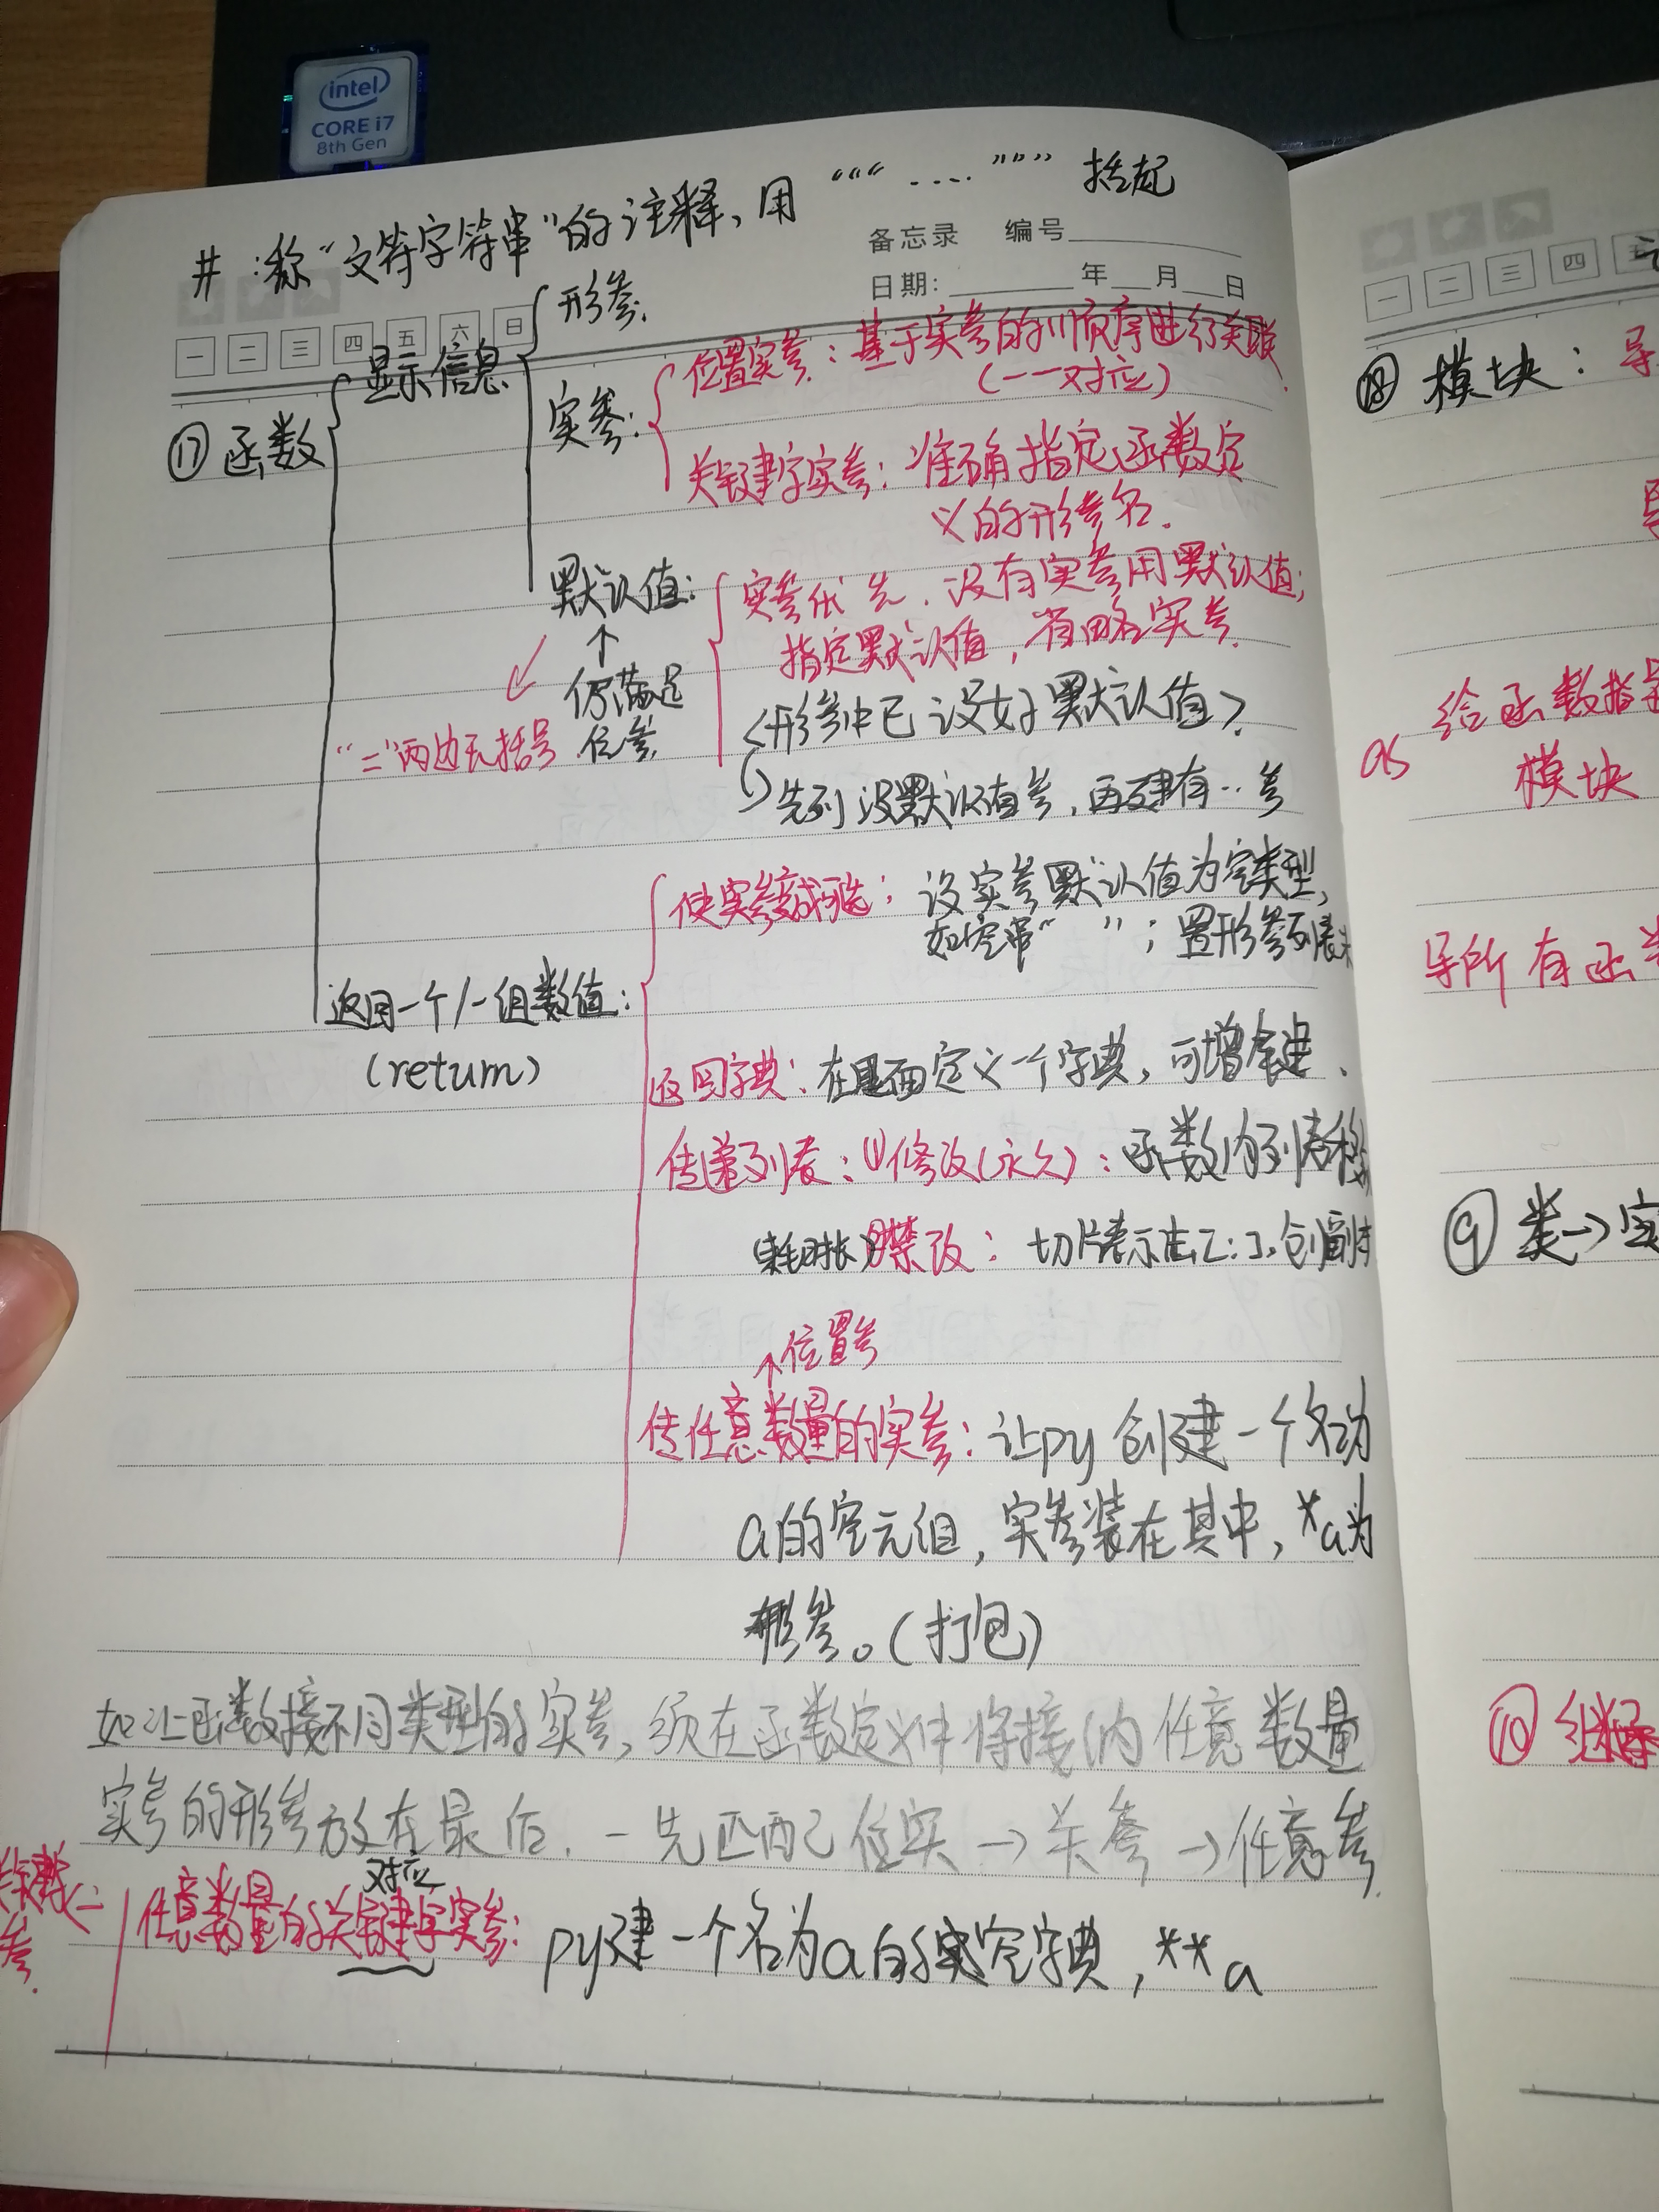 intel
CORE i7
8th Gen
#:称“文符字符串”的注释,用 “““ .... ””” 括起
备忘录 编号
日期: 年 月 日
一 二 三 四 五 六 日
⑰函数
显示信息
形参.
实参:
位置实参:基于实参的顺序进行关联
(一一对应).
关键字实参:准确指定函数定
义的形参名.
默认值:
↑
仍满足
位参
“=”两边无括号
实参优先.没有实参用默认值;
指定默认值,省略实参.
<形参中已设好默认值>.
先列没默认值参,再建有..参
返回一个/一组数值:
(return)
使实参变成可选:设实参默认值为空类型,
如空串“ ”;置形参列表末
返回字典:在里面定义一个字典,可增余建.
传递列表:①修改(永久):函数内列表移
(耗时长)②禁改:切片表示法[:].创副本
↑位置参
传任意数量的实参:让py创建一个名为
a的空元组,实参装在其中,*a为
形参。(打包)
如让函数接不同类型的实参,须在函数定义中将接纳任意数量
实参的形参放在最后.一先匹配位实→关参→任意参.
对应
任意数量的关键字实参:py建一个名为a的空字典,**a
一 二 三 四 五
⑱模块:导
给函数指定
as
模块
导所有函数
⑨类→实
⑩继承